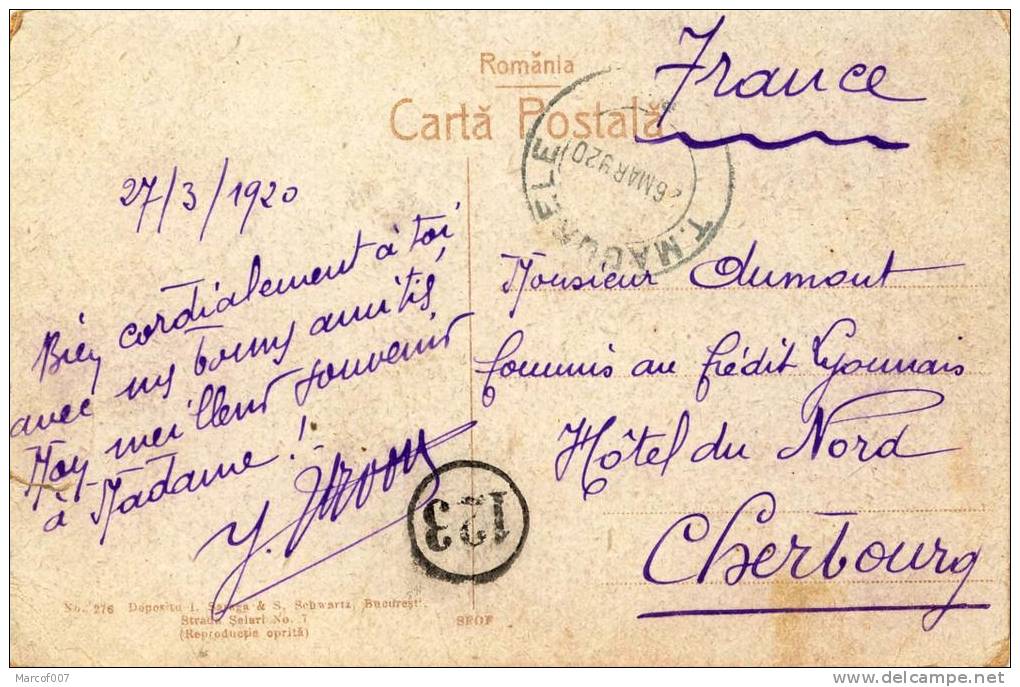 România
Carta Postala
France
T. MAGURELE
26 MAR 920
27/3/1920
Bien cordialement à toi
avec mes bonnes amitiés,
Mon meilleur souvenir
à Madame !
Y.
Monsieur Dumont
Commis au Crédit Lyonnais
Hôtel du Nord
Cherbourg
123
No. 276 Depositu I. Saraga & S. Schwartz, Bucuresti.
Strada Selari No. 7
(Reproductie oprită)
Marcof007